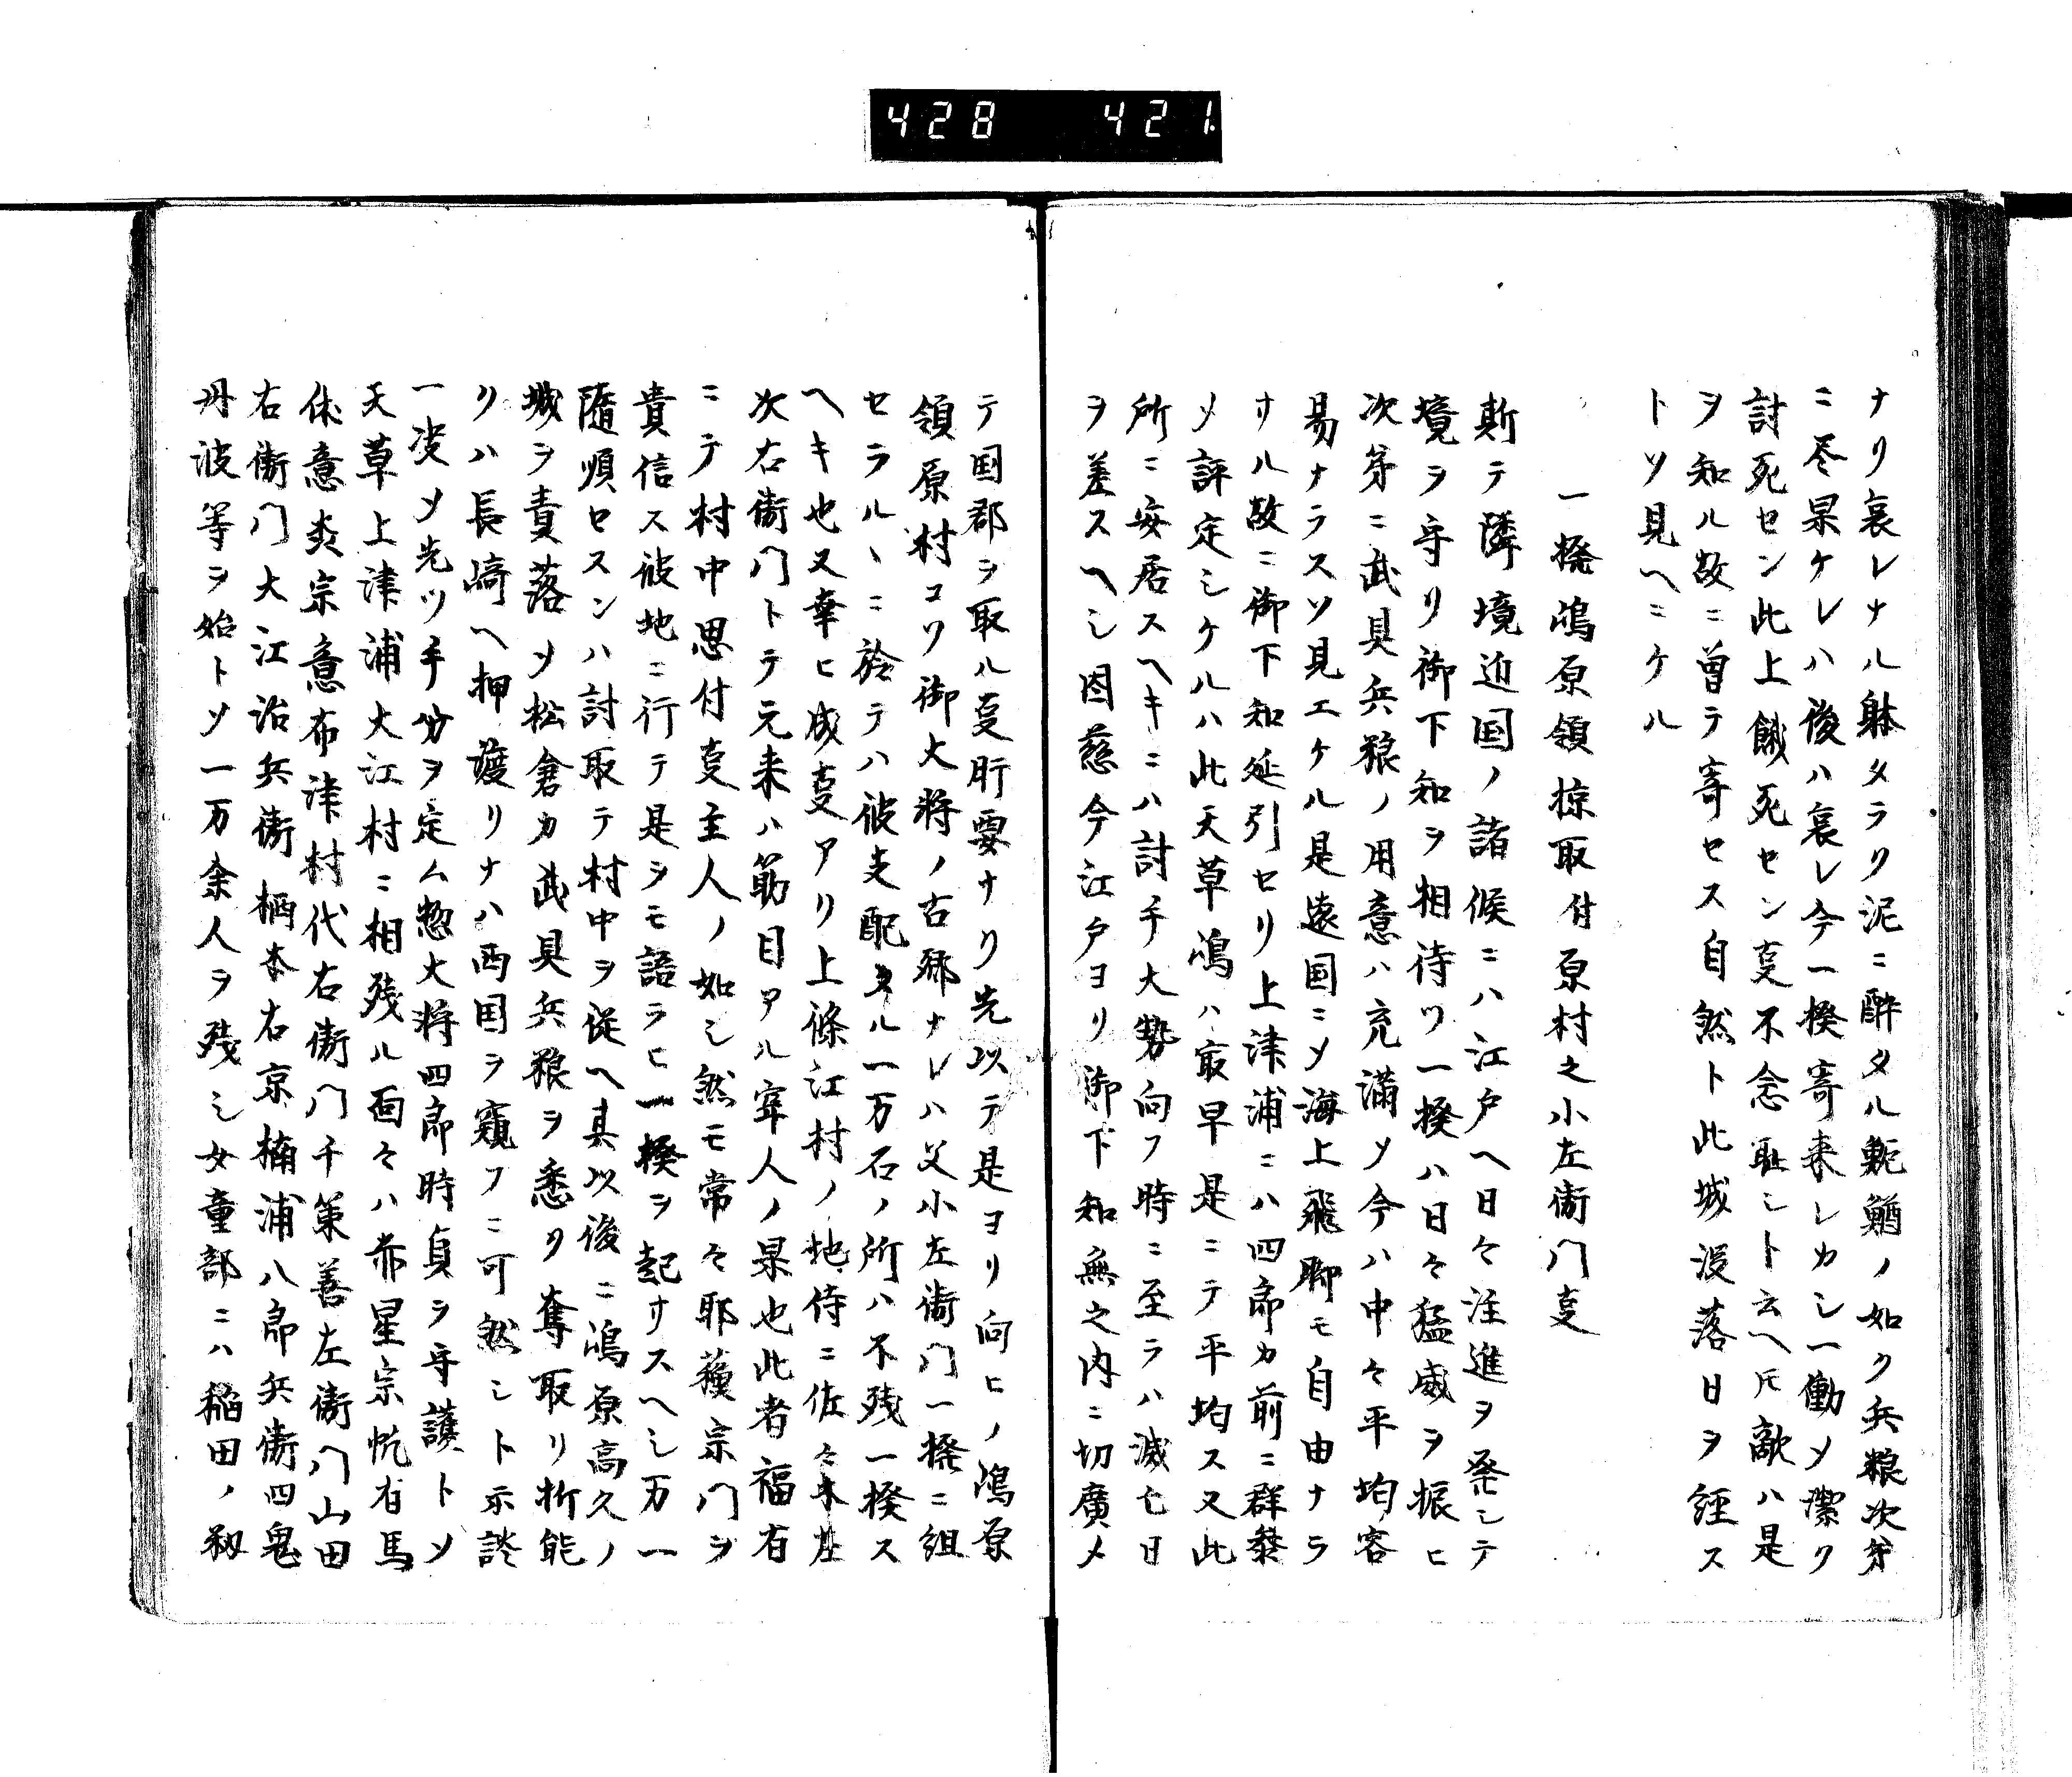 428 421
ナリ哀レナル躰タラク泥ニ酔タル魤鰌ノ如ク兵粮次㐧
ニ尽果ケレハ後ハ哀レ今一揆寄来レカシ一働メ潔ク
討死セン此上餓死セン㕝不念耻シト云ヘ𪜈敵ハ是
ヲ知ル故ニ曽テ寄セス自然ト此城没落日ヲ経ス
トソ見ヘニケル
一揆嶋原領掠取付原村之小左衛門㕝
斯テ隣境近国ノ諸候ニハ江戸ヘ日々注進ヲ発シテ
境ヲ守リ御下知ヲ相待ツ一揆ハ日々猛威ヲ振ヒ
次㐧ニ武具兵粮ノ用意ハ充満ソ今ハ中々平均容
易ナラスソ見エケル是遠国ニソ海上飛脚モ自由ナラ
サル故ニ御下知延引セリ上津浦ニハ四郎カ前ニ群発
ソ評定シケルハ此天草嶋ハ最早是ニテ平均ス又此
所ニ安居スヘキニハ討手大勢向フ時ニ至ラハ滅亡日
ヲ差スヘシ因慈今江戸ヨリ御下知無之内ニ切廣メ
テ国郡ヲ取ル㕝肝要ナリ先以テ是ヨリ向ヒノ嶋原
領原村コソ御大将ノ古郷ナレハ父小左衛門一揆ニ組
セラルヽニ於テハ彼支配タル一万石ノ所ハ不残一揆ス
ヘキ也又幸ヒ成㕝アリ上條江村ノ地侍ニ佐々木左
次右衛門トテ元来ハ筋目アル牢人ノ果也此者福有
ニテ村中思付㕝主人ノ如シ然モ常々耶蘓宗門ヲ
貴信ス彼地ニ行テ是ヲモ語ラヒ一揆ヲ起サスヘシ万一
随順セスンハ討取テ村中ヲ従ヘ其以後ニ嶋原高久ノ
城ヲ責落ソ松倉カ武具兵粮ヲ悉ク奪取リ折能
リハ長崎ヘ押渡リナハ西国ヲ窺フニ可然シト示談
一决ソ先ツ手分ヲ定ム惣大将四郎時貞ヲ守護トソ
天草上津浦大江村ニ相残ル面々ハ赤星宗帆有馬
休意炎宗意布津村代右衛門千策善左衛門山田
右衛門大江治兵衛栖本右京楠浦八郎兵衛四鬼
丹波等ヲ始トソ一万余人ヲ残シ女童部ニハ稲田ノ籾